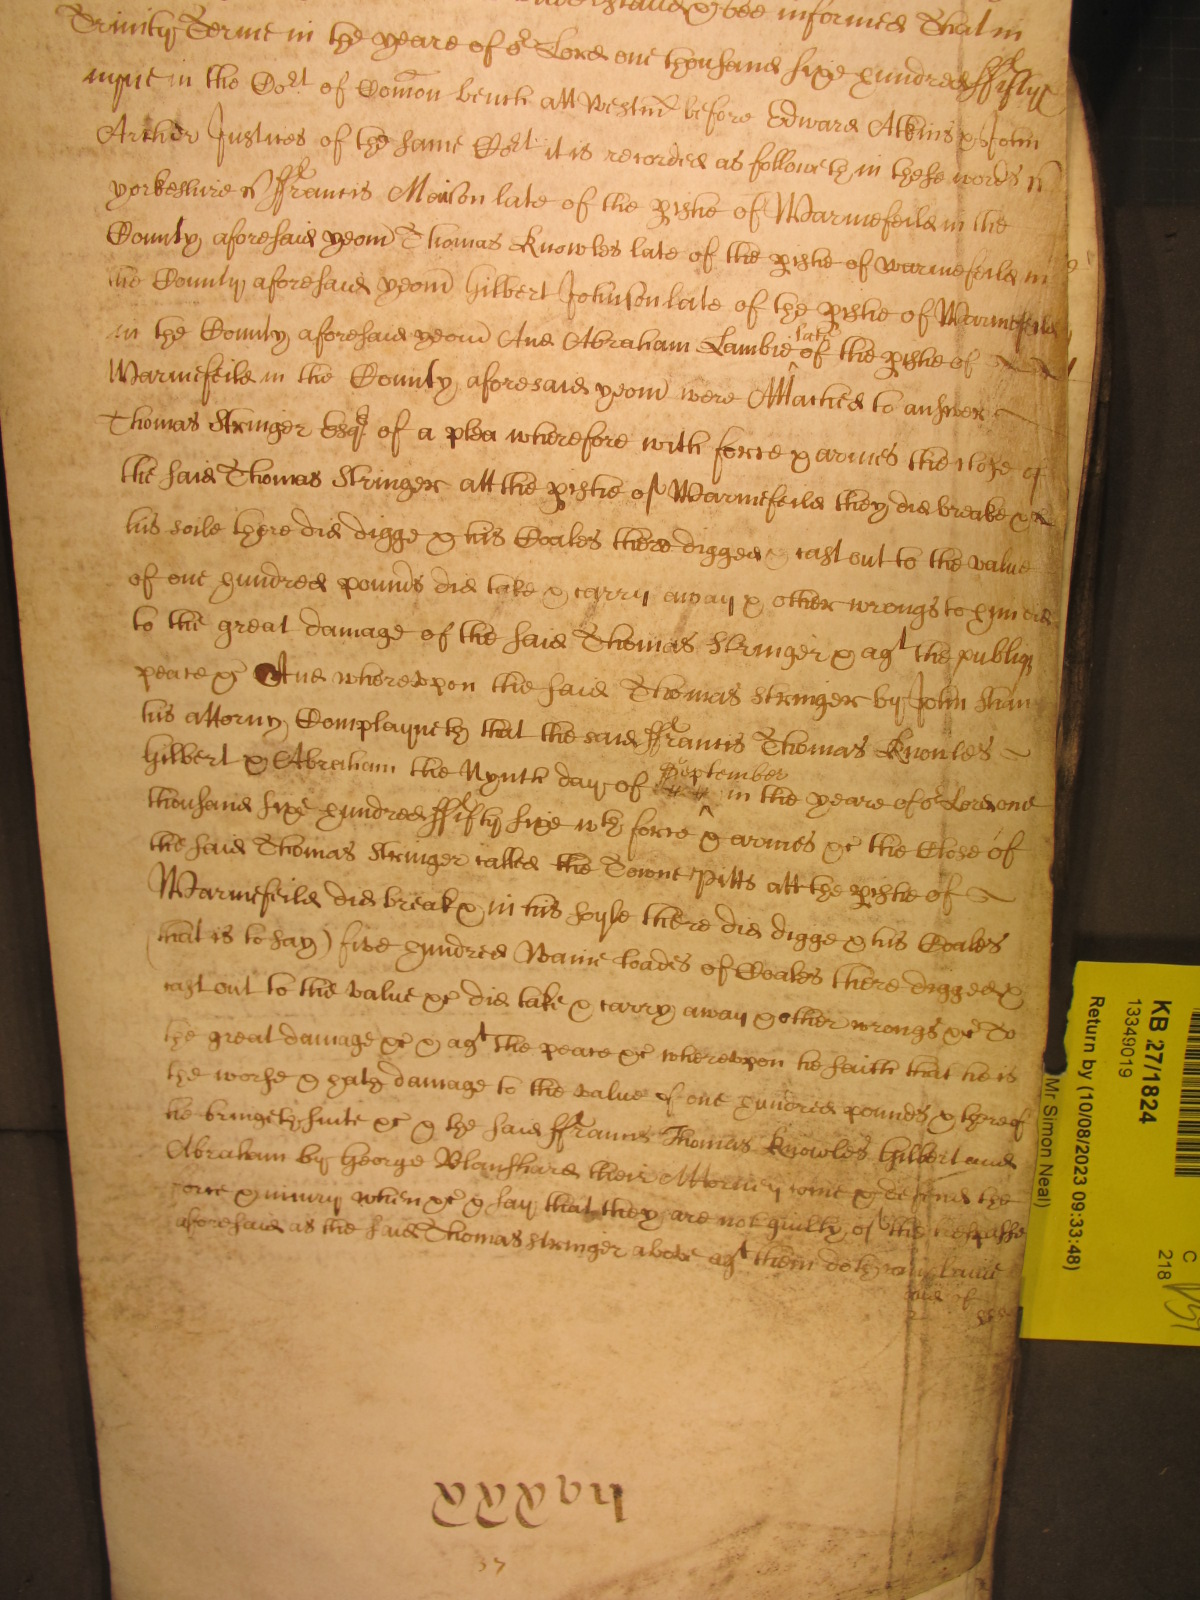 understand & bee informed That in
Trinity Terme in the yeare of or Lord one thousand sixe hundred ffifty
nyne in the Cort of Comon bench att Westmr before Edward Atkins & John
Archer Justices of the same Cort it is recorded as followeth in these words ss
yorkeshire ss ffrancis Mawson late of the pishe of Warmefeild in the
County aforesaid yeom Thomas Knowles late of the pishe of warmefeild in
the County aforesaid yeom Gilbert Johnson late of the pishe of Warmefeild
in the County aforesaid yeom And Abraham Lambie late of the pishe of
Warmefeild in the County aforesaid yeom were Attached to answer
Thomas Stringer Esqr of a plea wherefore with force & armes the close of
the said Thomas Stringer att the pishe of Warmefeild they did breake & in
his soile there did digge & his Coales there digged & cast out to the value
of one hundred pounds did take & carry away & other wrongs to him did
to the great damage of the said Thomas Stringer & agt the publiq
peace &c And whereupon the said Thomas Stringer by John Shan
his attorny Complayneth that the said ffrancis Thomas Knowles
Gilbert & Abraham the Nynth day of September in the yeare of or Lord one
thousand sixe hundred ffifty sixe wth force & armes &c the Close of
the said Thomas Stringer called the Towne Pitts att the pishe of
Warmefeild did break & in his soyle there did digge & his Coales
(that is to say) five hundred Waine loades of Coales there digged &
cast out to the value &c did take & carry away & other wrongs &c To
the great damage &c & agt the peace &c whereupon he saith that he is
the worse & hath damage to the value of one hundred pounds & thereof
he bringeth suite &c & the said ffrancis Thomas Knowles Gilbert and
Abraham by George Blanshard their Attorney come & defend the
force & iniury when &c & say that they are not guilty of the trespasse
aforesaid as the said Thomas Stringer above agt them doth complaine
and of
37
KB 27/1824
13349019
Return by (10/08/2023 09:33:48)
Mr Simon Neal)
C
218